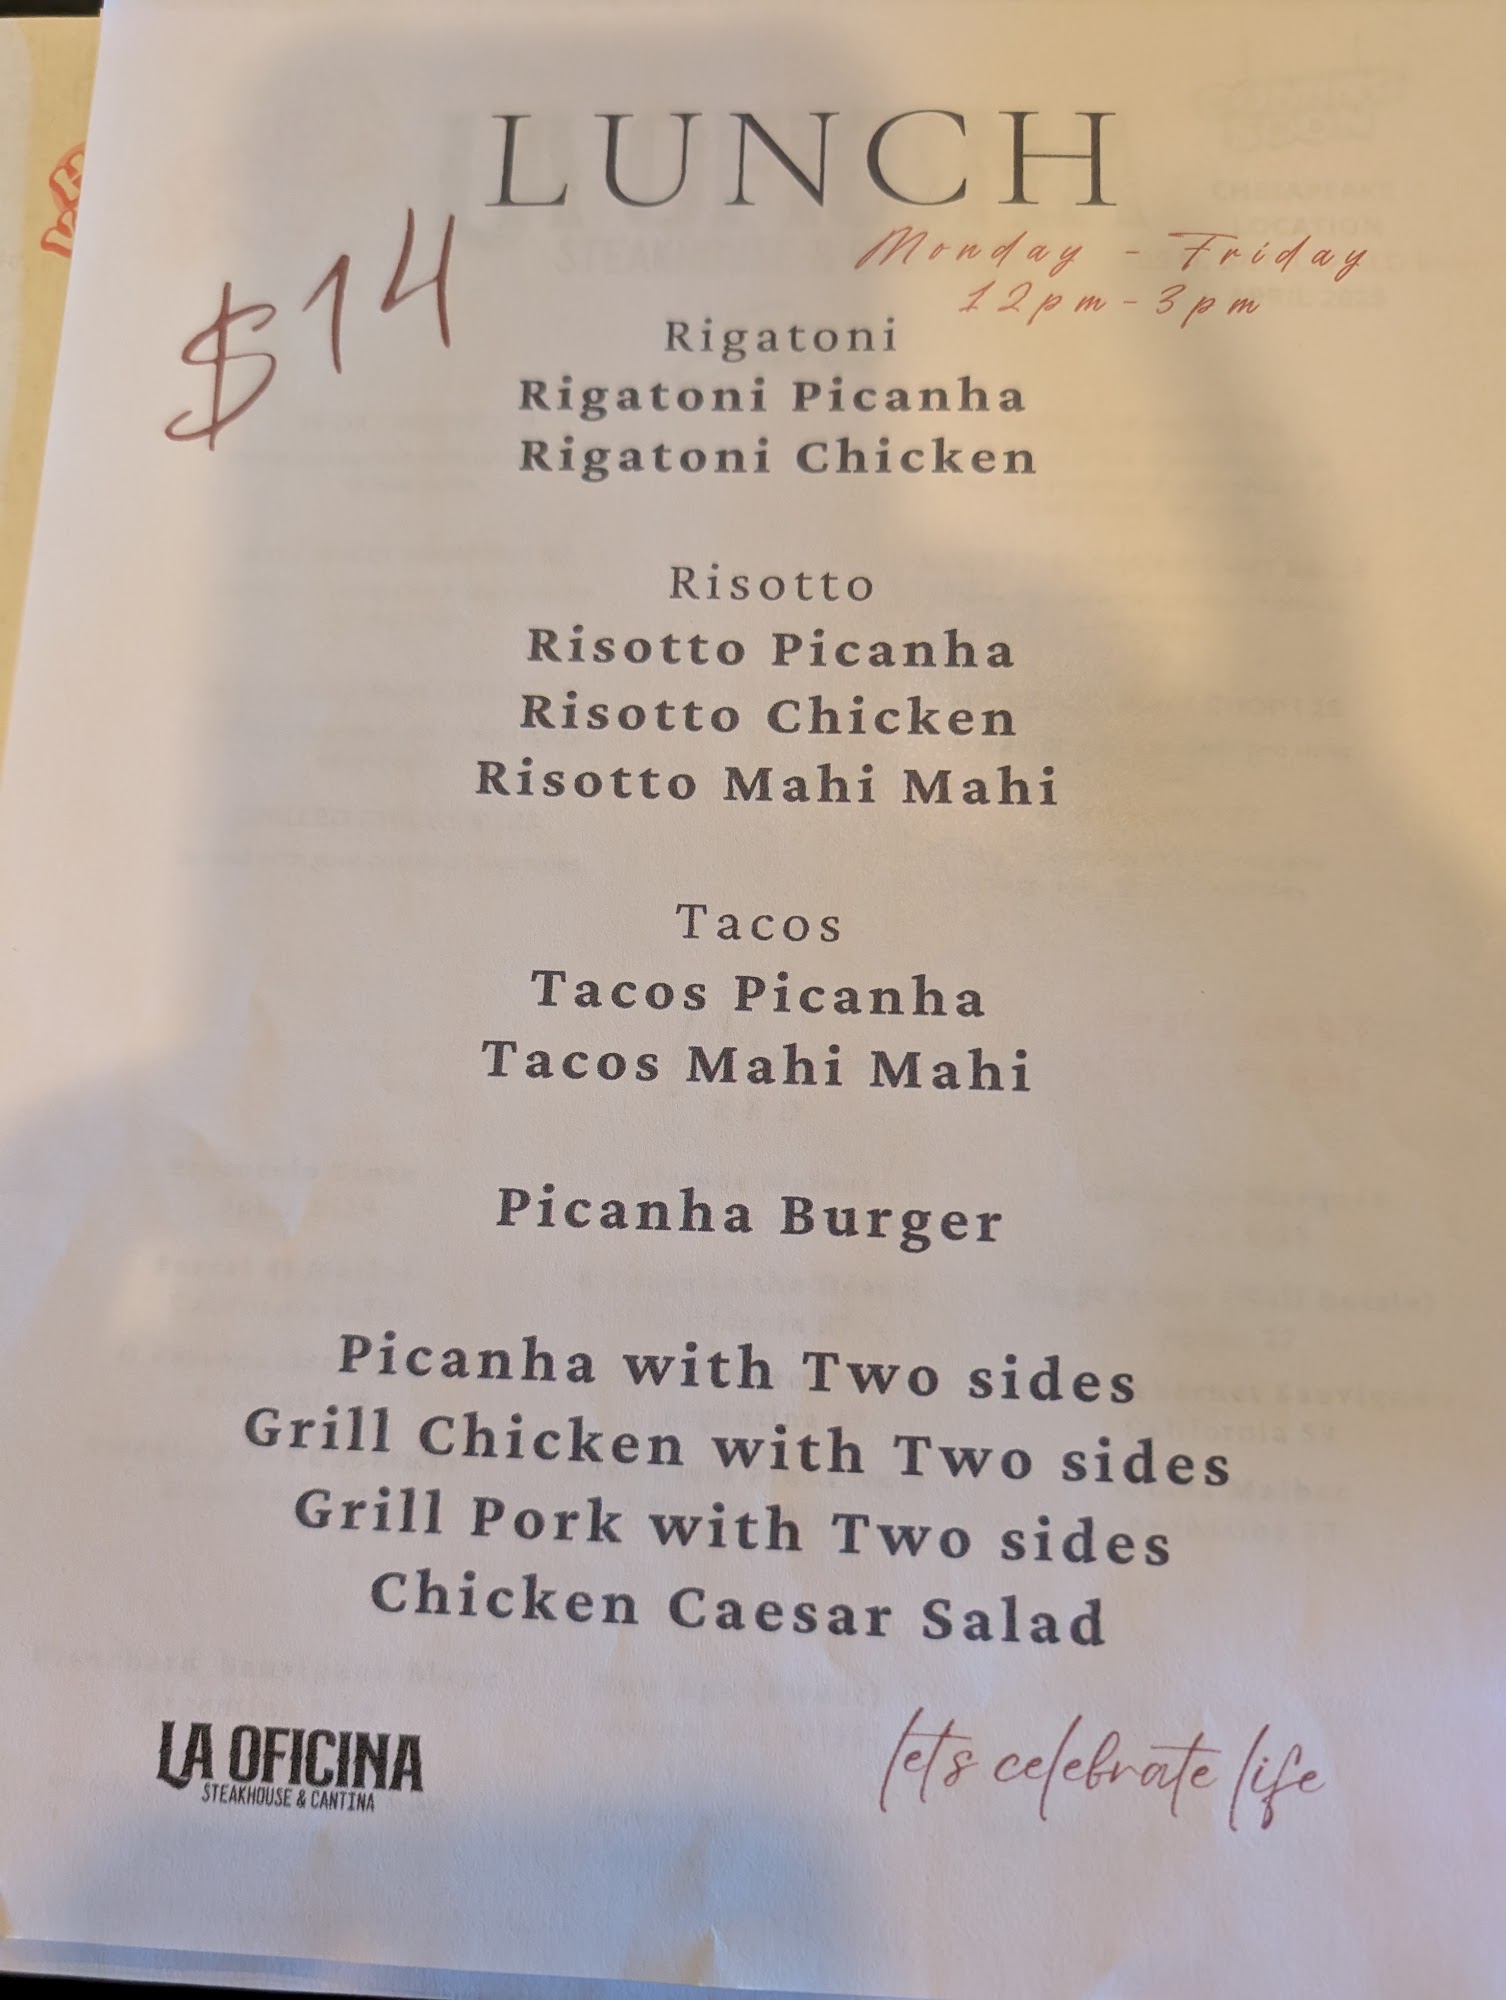 LUNCH
$14
Monday - Friday
12pm-3pm
Rigatoni
Rigatoni Picanha
Rigatoni Chicken
Risotto
Risotto Picanha
Risotto Chicken
Risotto Mahi Mahi
Tacos
Tacos Picanha
Tacos Mahi Mahi
Picanha Burger
Picanha with Two sides
Grill Chicken with Two sides
Grill Pork with Two sides
Chicken Caesar Salad
LA OFICINA
STEAKHOUSE & CANTINA
let's celebrate life
CHESAPEAKE
LOCATION